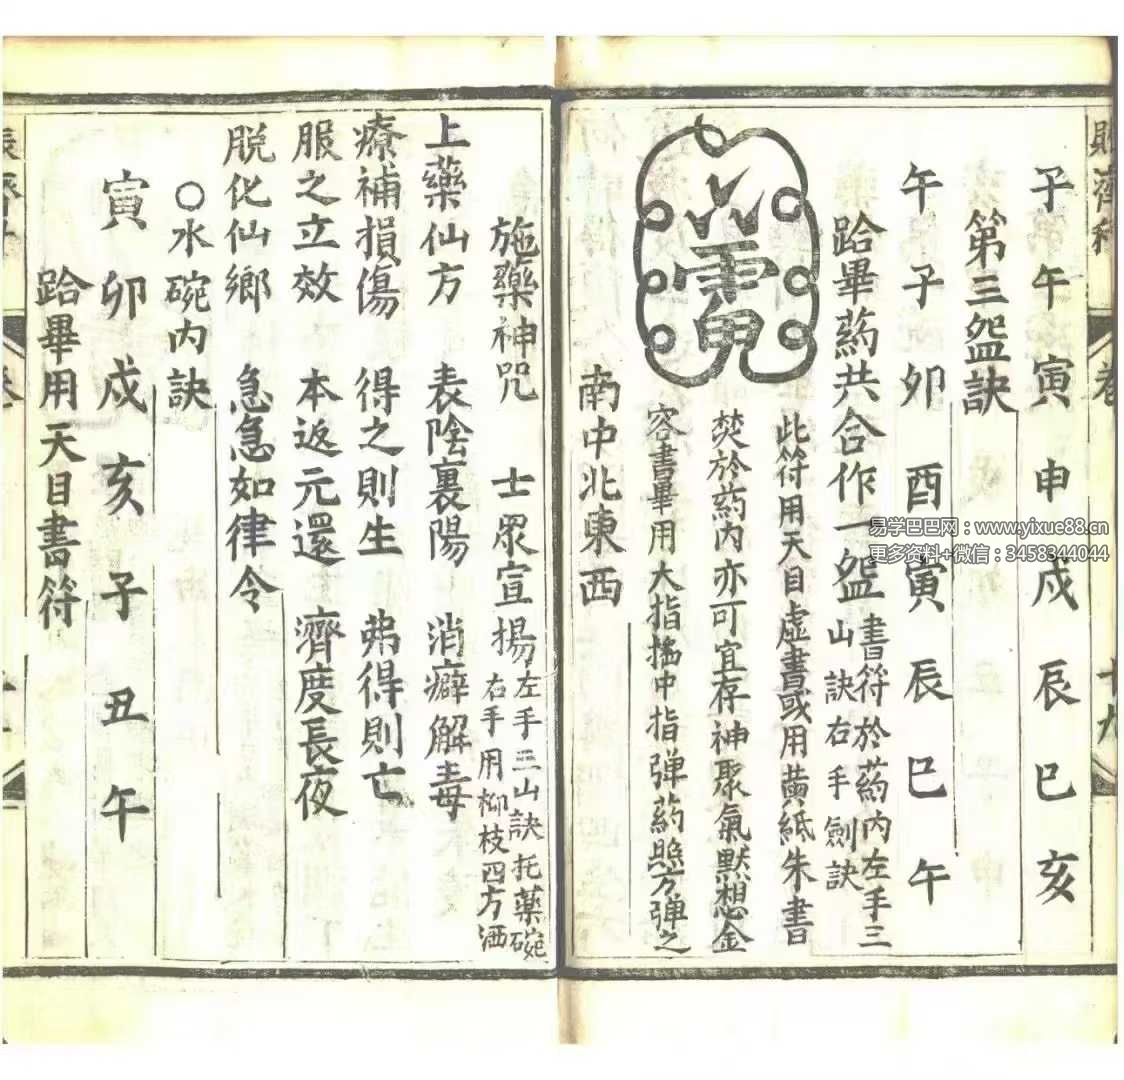 子午寅申戌辰巳亥
第三盌訣
午子卯酉寅辰巳午
跲畢葯共合作一盌
書符於葯內左手三
山訣右手劍訣
此符用天目虛書或用黄紙朱書
焚於葯內亦可宜存神聚氣默想金
容書畢用大指搖中指弹葯照方弹之
南中北東西
施藥神咒 士眾宣揚
左手三山訣托藥碗
右手用柳枝四方洒
上藥仙方 表陰裏陽 消癖解毒
療補損傷 得之則生 弗得則亡
服之立效 本返元還 濟度長夜
脱化仙鄉 急急如律令
○水碗内訣
寅卯戌亥子丑午
跲畢用天目書符
易学巴巴网：www.yixue88.cn
更多资料+微信：3458344044